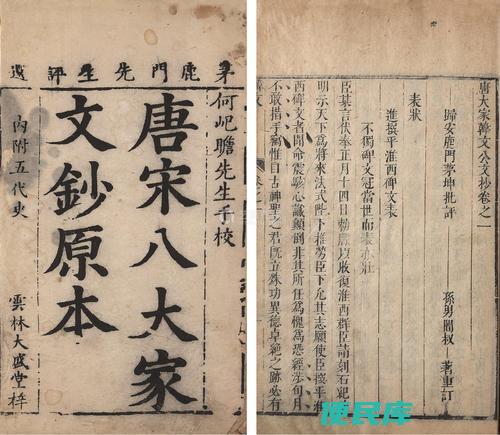 茅鹿門先生評選
何屺瞻先生手校
唐宋八大家
文鈔原本
內附五代史
雲林大盛堂梓
唐大家韓文公文抄卷之一
歸安鹿門茅坤批評
孫男闇叔茅著重訂
表狀
進撰平淮西碑文表
不獨碑文冠當世而表亦壯
臣某言伏奉正月十四日勑牒以收復淮西群臣請刻石紀功
明示天下為將來法式陛下推勞臣下允其志願使臣撰平淮
西碑文者聞命震駭心識顛倒非其所任為愧為恐經涉旬月
不敢措手竊惟自古神聖之君既立殊功異德卓絕之跡必有
便民库